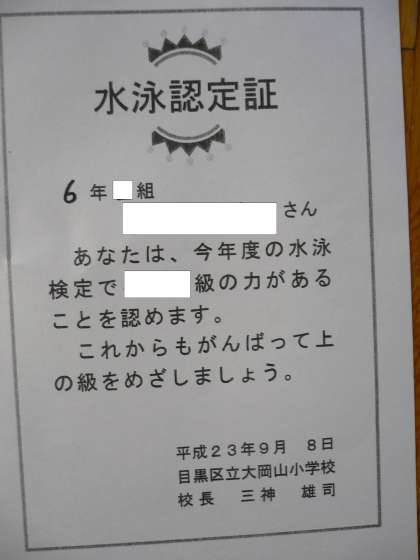 水泳認定証
6年 組
さん
あなたは、今年度の水泳
検定で 級の力がある
ことを認めます。
これからもがんばって上
の級をめざしましょう。
平成23年9月 8日
目黒区立大岡山小学校
校長 三神 雄司